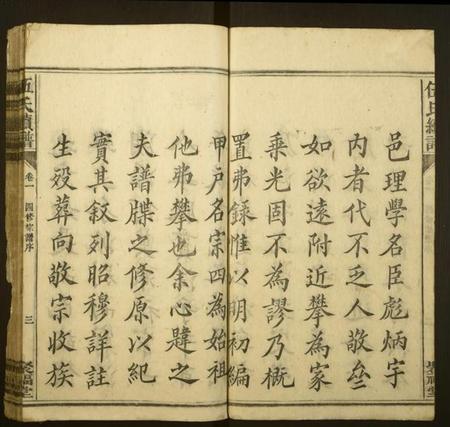 伍氏續譜
邑理學名臣彪炳宇
內者代不乏人敬叁
如欲遠附近攀為家
乗光固不為謬乃概
置弗錄惟以明初編
甲戶名宗四為始祖
他弗攀也余心韙之
夫譜牒之修原以紀
實其叙列昭穆詳註
生殁葬向敬宗收族
伍氏續譜
卷一
四修宗譜序
三